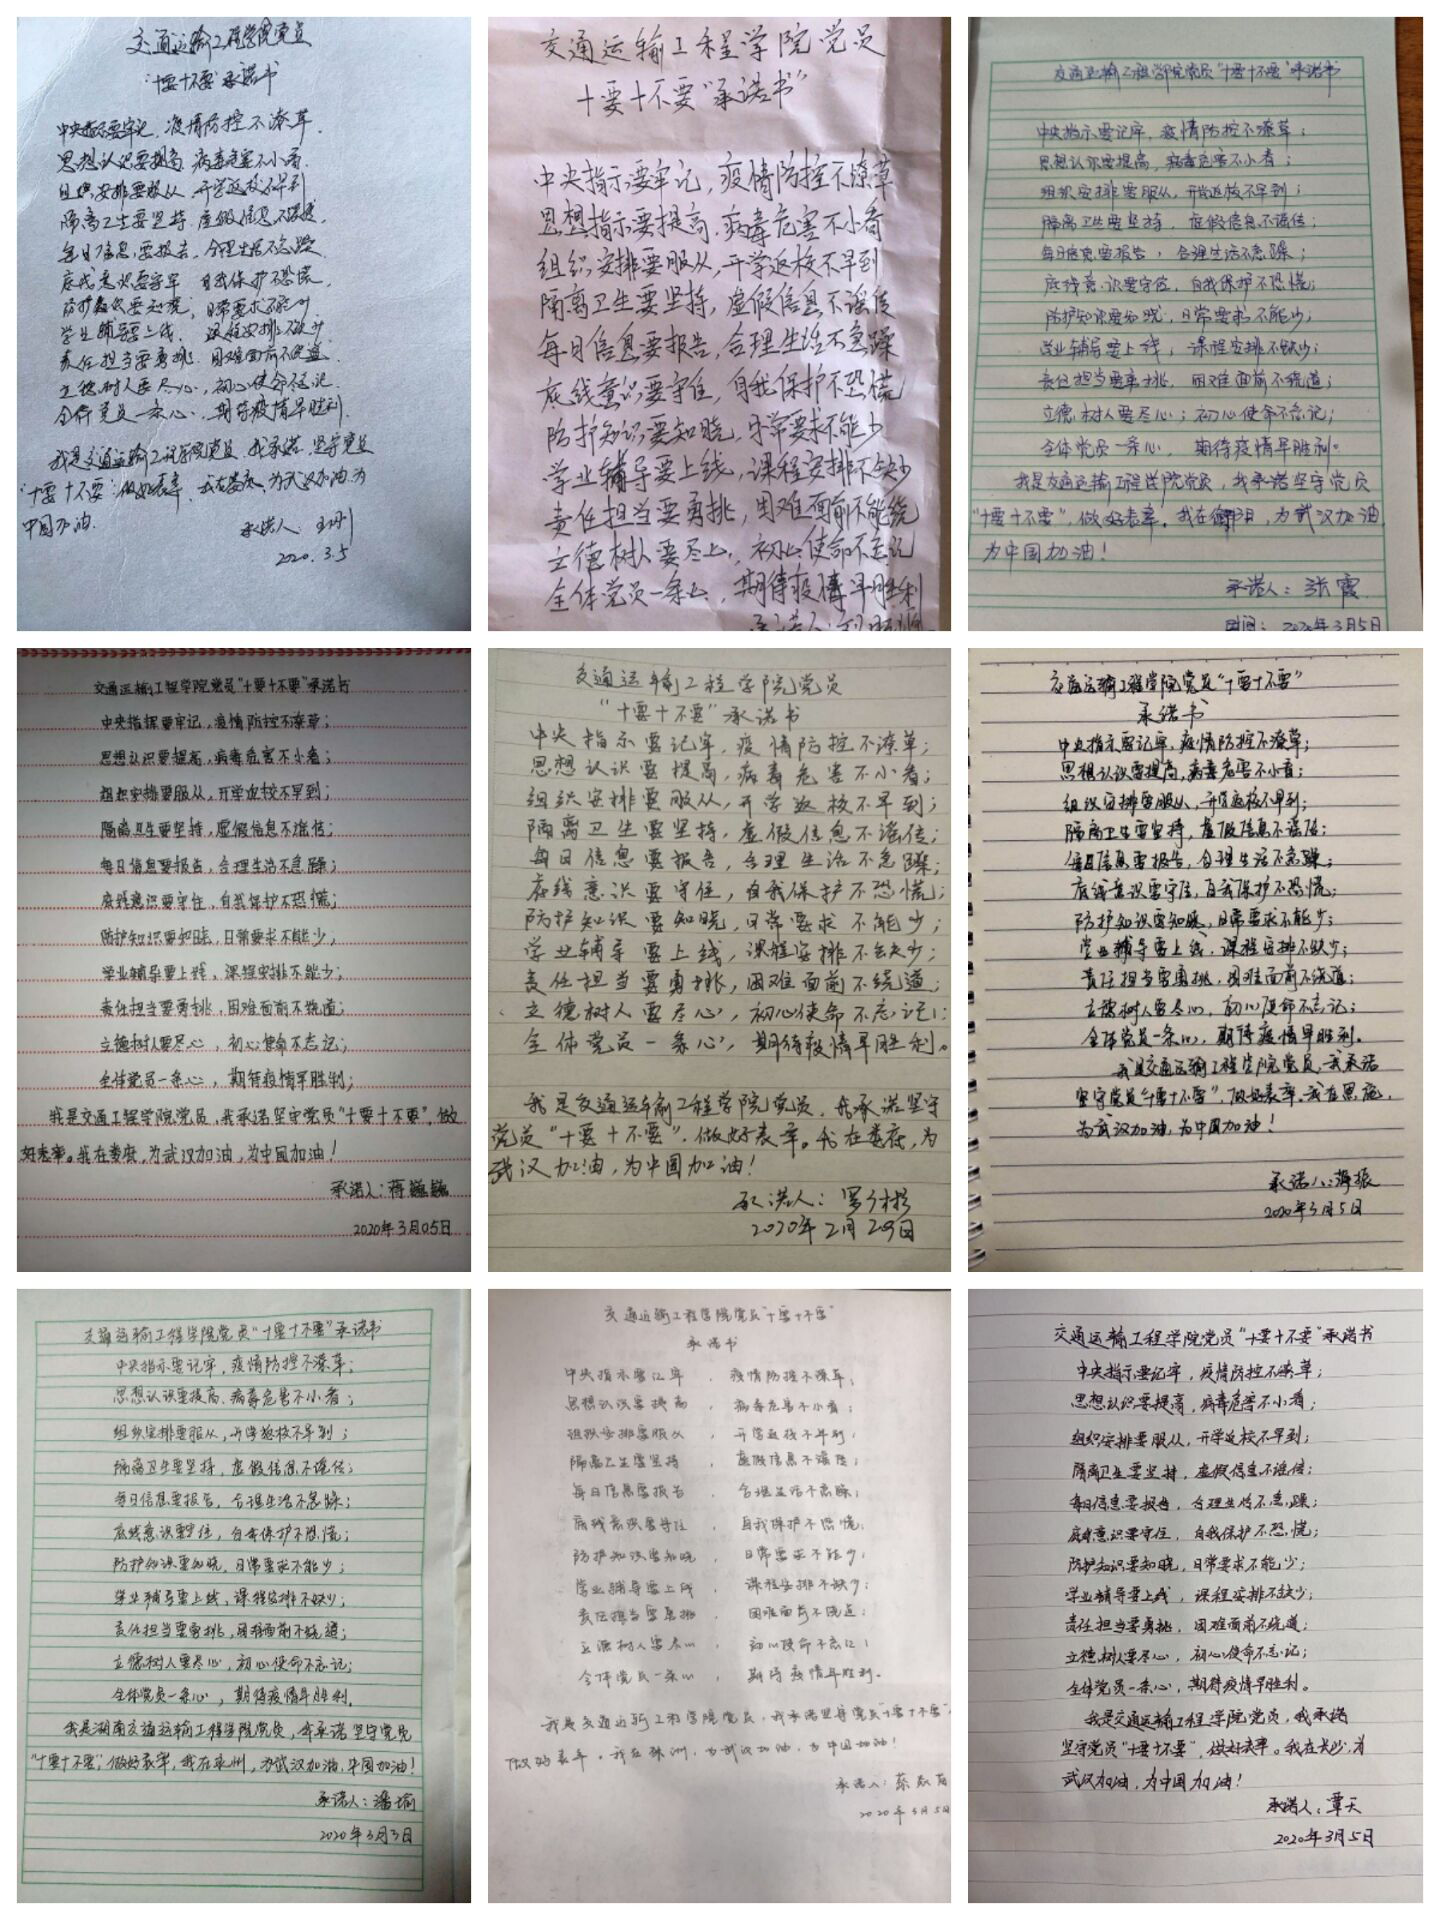 交通运输工程学院党员
"十要十不要"承诺书
中央指示要牢记，疫情防控不潦草．
思想认识要提高 病毒危害不小看．
组织安排要服从 开学返校不早到
隔离卫生要坚持，虚假信息不谣传．
每日信息要报告，合理生活不急躁．
底线意识要守牢 自我保护不恐慌．
防护知识要知晓；日常要求不能少
学生辅导要上线 课程安排不缺少
责任担当要勇挑．困难面前不绕道．
立德树人要尽心，初心使命不忘记．
全体党员一条心，期待疫情早胜利．
我是交通运输工程学院党员，我承诺．坚守党员
"十要十不要"做好表率．我在娄底，为武汉加油 为
中国加油．
承诺人：
2020.3.5
交通运输工程学院党员
十要十不要"承诺书"
中央指示要牢记，疫情防控不潦草
思想指示要提高，病毒危害不小看
组织安排要服从，开学返校不早到
隔离卫生要坚持，虚假信息不谣传
每日信息要报告，合理生活不急躁
底线意识要守住，自我保护不恐慌
防护知识要知晓，日常要求不能少
学业辅导要上线，课程安排不缺少
责任担当要勇挑，困难面前不能绕
立德树人要尽心，初心使命不忘记
全体党员一条心，期待疫情早胜利
承诺人：
交通运输工程学院党员"十要十不要"承诺书
中央指示要记牢，疫情防控不潦草；
思想认识要提高，病毒危害不小看；
组织安排要服从，开学返校不早到；
隔离卫生要坚持，虚假信息不谣传；
每日信息要报告，合理生活不急躁；
底线意识要守住，自我保护不恐慌；
防护知识要知晓，日常要求不能少；
学业辅导要上线；课程安排不缺少；
责任担当要勇挑，困难面前不绕道；
立德树人要尽心；初心使命不忘记；
全体党员一条心，期待疫情早胜利。
我是交通运输工程学院党员，我承诺坚守党员
"十要十不要"，做好表率。我在衡阳，为武汉加油
为中国加油！
承诺人：张霞
时间：2020年3月5日
交通运输工程学院党员"十要十不要"承诺书
中央指挥要牢记，疫情防控不潦草；
思想认识要提高，病毒危害不小看；
组织安排要服从，开学返校不早到；
隔离卫生要坚持，虚假信息不谣传；
每日信息要报告，合理生活不急躁；
底线意识要守住，自我保护不恐慌；
防护知识要知晓，日常要求不能少，
学业辅导要上线，课程安排不能少；
责任担当要勇挑，困难面前不绕道；
立德树人要尽心，初心使命不忘记；
全体党员一条心，期待疫情早胜利；
我是交通工程学院党员，我承诺坚守党员"十要十不要"，做
好表率。我在娄底，为武汉加油，为中国加油！
承诺人：蒋巍巍
2020年3月05日
交通运输工程学院党员
"十要十不要"承诺书
中央指示要记牢，疫情防控不潦草；
思想认识要提高，病毒危害不小看；
组织安排要服从，开学返校不早到；
隔离卫生要坚持，虚假信息不谣传；
每日信息要报告，合理生活不急躁；
底线意识要守住，自我保护不恐慌；
防护知识要知晓，日常要求不能少；
学业辅导要上线，课程安排不缺少；
责任担当要勇挑，困难面前不绕道；
立德树人要尽心，初心使命不忘记；
全体党员一条心，期待疫情早胜利。
我是交通运输工程学院党员，我承诺坚守
党员"十要十不要"，做好表率。我在娄底，为
武汉加油，为中国加油！
承诺人：
2020年2月29日
交通运输工程学院党员"十要十不要"
承诺书
中央指示要记牢，疫情防控不潦草；
思想认识要提高，病毒危害不小看；
组织安排要服从，开学返校不早到；
隔离卫生要坚持，虚假信息不谣传；
每日信息要报告，合理生活不急躁；
底线意识要守住，自我保护不恐慌；
防护知识要知晓，日常要求不能少；
学业辅导要上线，课程安排不缺少；
责任担当要勇挑，困难面前不绕道；
立德树人要尽心，初心使命不忘记；
全体党员一条心，期待疫情早胜利。
我是交通运输工程学院党员，我承诺
坚守党员"十要十不要"，做好表率，我在恩施，
为武汉加油，为中国加油！
承诺人：
2020年3月5日
交通运输工程学院党员"十要十不要"承诺书
中央指示要记牢，疫情防控不潦草；
思想认识要提高，病毒危害不小看；
组织安排要服从，开学返校不早到；
隔离卫生要坚持，虚假信息不谣传；
每日信息要报告，合理生活不急躁；
底线意识要守住，自我保护不恐慌；
防护知识要知晓，日常要求不能少；
学业辅导要上线，课程安排不缺少；
责任担当要勇挑，困难面前不绕道；
立德树人要尽心，初心使命不忘记；
全体党员一条心，期待疫情早胜利。
我是湖南交通运输工程学院党员，我承诺坚守党员
"十要十不要"，做好表率，我在永州，为武汉加油，中国加油！
承诺人：潘瑜
2020年3月3日
交通运输工程学院党员"十要十不要"
承诺书
中央指示要记牢，疫情防控不潦草；
思想认识要提高，病毒危害不小看；
组织安排要服从，开学返校不早到；
隔离卫生要坚持，虚假信息不谣传；
每日信息要报告，合理生活不急躁；
底线意识要守住，自我保护不恐慌；
防护知识要知晓，日常要求不能少；
学业辅导要上线，课程安排不缺少；
责任担当要勇挑，困难面前不绕道；
立德树人要尽心，初心使命不忘记；
全体党员一条心，期待疫情早胜利。
我是交通运输工程学院党员，我承诺坚守党员"十要十不要"，
做好表率。我在株洲，为武汉加油，为中国加油！
承诺人：蔡
2020年3月5日
交通运输工程学院党员"十要十不要"承诺书
中央指示要记牢，疫情防控不潦草；
思想认识要提高，病毒危害不小看；
组织安排要服从，开学返校不早到；
隔离卫生要坚持，虚假信息不谣传；
每日信息要报告，合理生活不急躁；
底线意识要守住，自我保护不恐慌；
防护知识要知晓，日常要求不能少；
学业辅导要上线，课程安排不缺少；
责任担当要勇挑，困难面前不绕道；
立德树人要尽心，初心使命不忘记；
全体党员一条心，期待疫情早胜利。
我是交通运输工程学院党员，我承诺
坚守党员"十要十不要"，做好表率。我在长沙，为
武汉加油，为中国加油！
承诺人：覃天
2020年3月5日